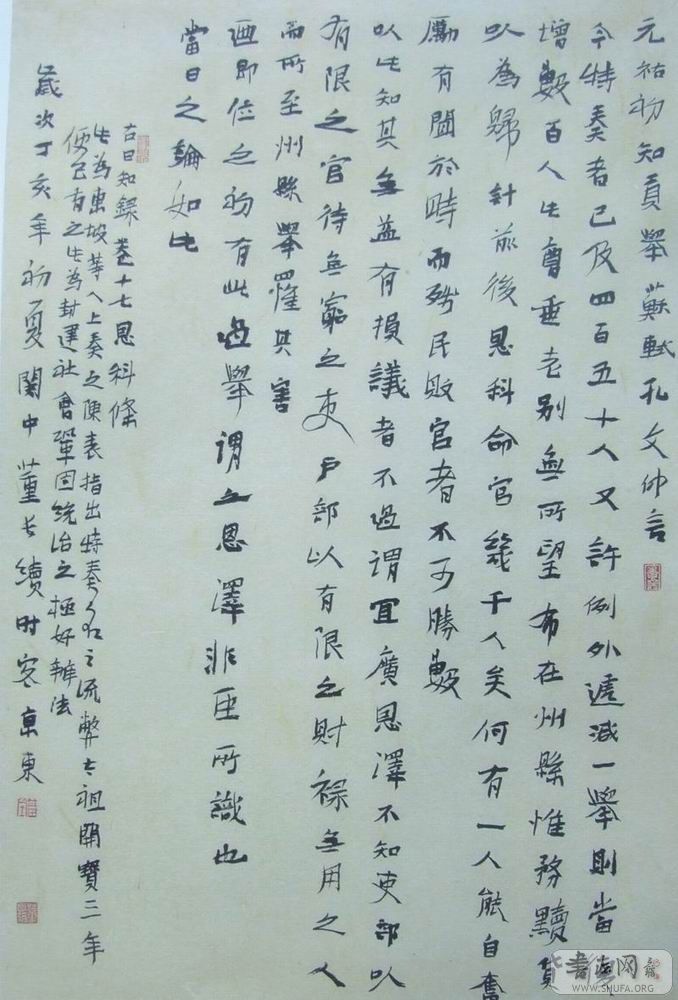 元祐初知貢舉蘇軾孔文仲言
今特奏者已及四百五十人又許例外遞減一舉則當
增數百人此曹垂老別無所望布在州縣惟務黷貨
以為歸計前後恩科命官幾千人矣何有一人能自奮
厲有聞於時而殘民敗官者不可勝數
以此知其無益有損議者不過謂宜廣恩澤不知吏部以
有限之官待無窮之吏戶部以有限之財祿無用之人
而所至州縣舉罹其害
迺即位之初有此過舉謂之恩澤非臣所識也
當日之論如此
右日知錄卷十七恩科條
此為東坡等人上奏之陳表指出特奏名之流弊太祖開寶三年
便已有之此為封建社會鞏固統治之極好辦法
歲次丁亥年初夏關中董長續時客京東
書法网
WWW.SHUFA.ORG